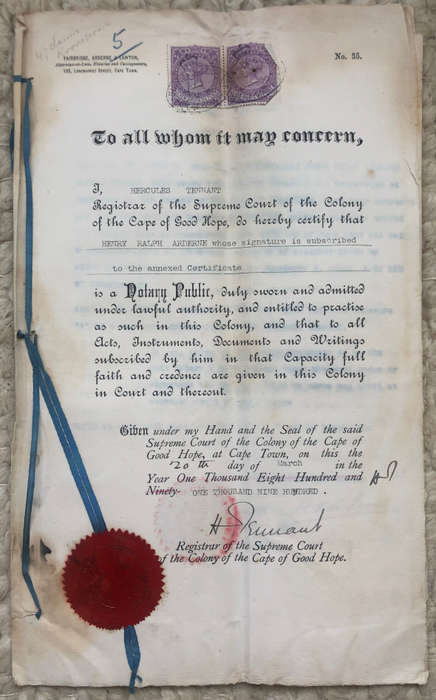 5
FAIRBRIDGE, ARDERNE & LAWTON,
Attorneys-at-Law, Notaries and Conveyancers,
No. 35.
To all whom it may concern,
I, HERCULES TENNANT
Registrar of the Supreme Court of the Colony
of the Cape of Good Hope, do hereby certify that
HENRY RALPH ARDERNE whose signature is subscribed
to the annexed Certificate
is a Notary Public, duly sworn and admitted
under lawful authority, and entitled to practise
as such in this Colony, and that to all
Acts, Instruments, Documents and Writings
subscribed by him in that Capacity full
faith and credence are given in this Colony
in Court and thereout.
Given under my Hand and the Seal of the said
Supreme Court of the Colony of the Cape of
Good Hope, at Cape Town, on this the
20 th day of March in the
Year One Thousand Eight Hundred and
Ninety- ONE THOUSAND NINE HUNDRED.
HT
H Tennant
Registrar of the Supreme Court
of the Colony of the Cape of Good Hope.